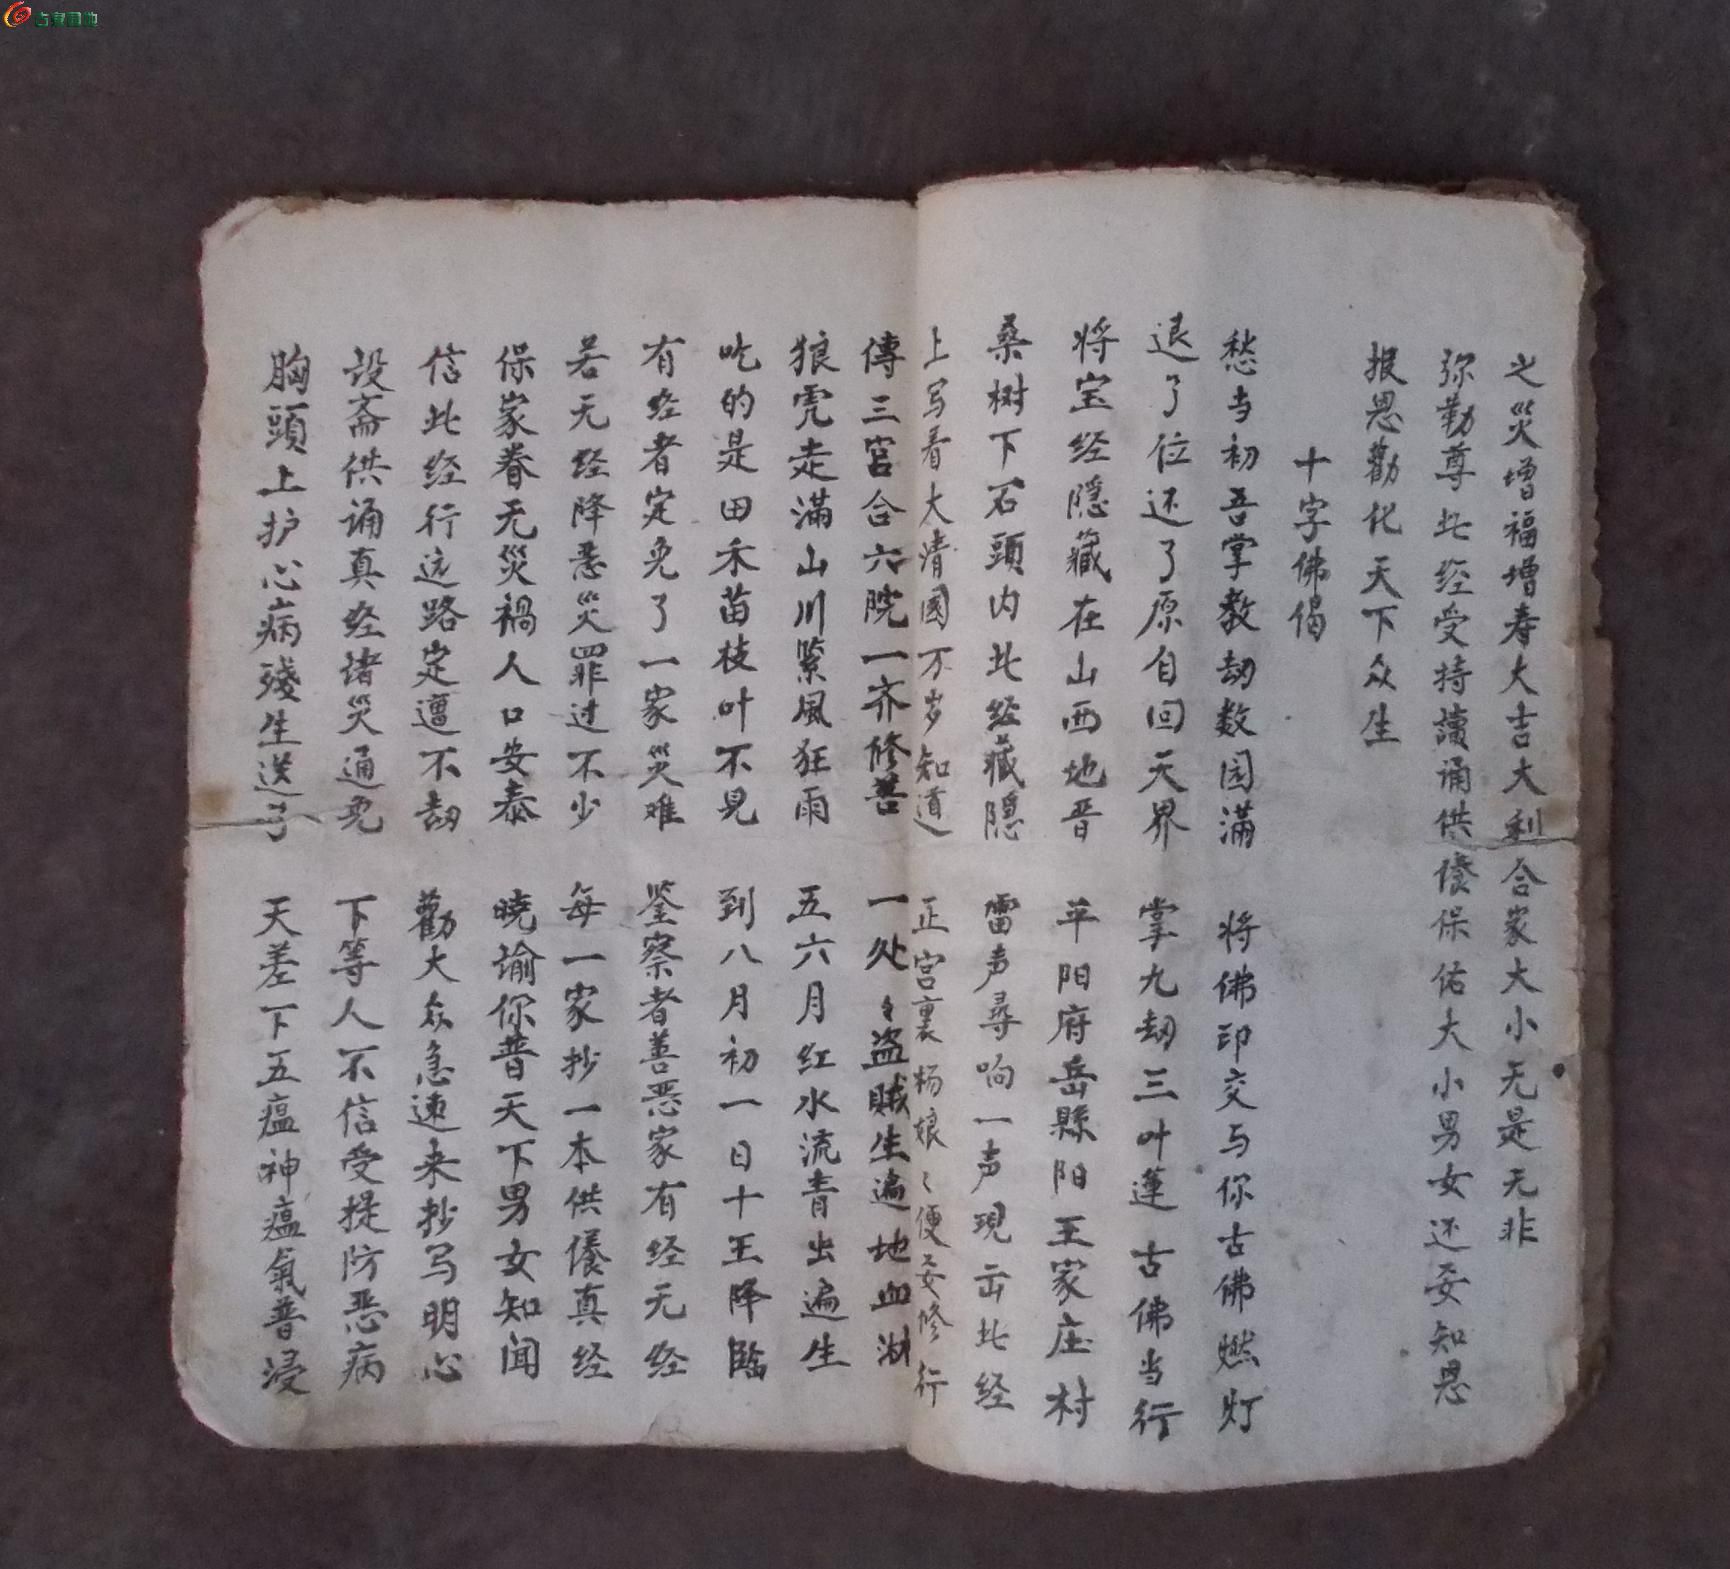 之災增福增寿大吉大利合家大小无是无非
弥勒尊此经受持讀诵供养保佑大小男女还要知恩
报恩勸化天下众生
十字佛偈
愁当初吾掌教劫数园满 将佛印交与你古佛燃灯
退了位还了原自回天界 掌九劫三叶莲古佛当行
将宝经隱藏在山西地晋 平阳府岳縣阳王家庄村
桑树下石頭内此经藏隱 雷声尋响一声現出此经
上写着大清國万岁知道 正宫裏杨娘々便要修行
傳三宫合六院一齐修善 一处々盗贼生遍地血湖
狼虎走滿山川紧風狂雨 五六月红水流青出遍生
吃的是田禾苗枝叶不見 到八月初一日十王降臨
有经者定免了一家災难 鉴察者善恶家有经无经
若无经降恶災罪过不少 每一家抄一本供养真经
保家眷无災禍人口安泰 晓谕你普天下男女知闻
信此经行远路定遭不劫 勸大众急速来抄写明心
設斋供诵真经诸災通免 下等人不信受提防恶病
胸頭上护心病殘生送了 天差下五瘟神瘟氣普浸